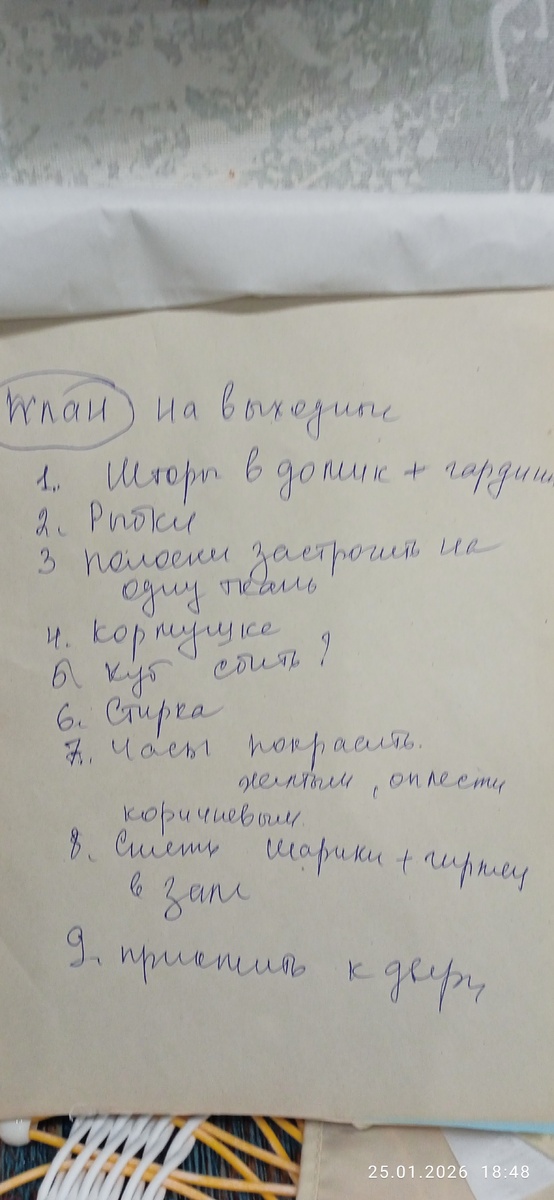 План на выходные
1. Шторы в домик + гардины
2. Рыбки
3 полоски застрочить на
одну ткань
4. кормушке
5. Куб сбить?
6. Стирка
7. Часы покрасить.
желтым, оплести
коричневым.
8. Снять шарики +
в зале
9. к двери
25.01.2026 18:48